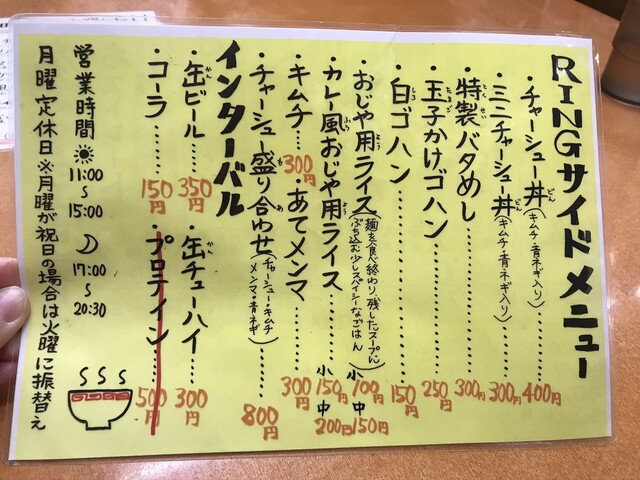 RINGサイドメニュー
・チャーシュー丼(キムチ・青ネギ入り)……400円
・ミニチャーシュー丼(キムチ・青ネギ入り)…300円
・特製バタめし……300円
・玉子かけゴハン……250円
・白ゴハン……150円
・おじや用ライス(麺を食べ終わり、残したスープにぶち込む少しスパイシーなごはん)小100円 中150円
・カレー風おじや用ライス……小150円 中200円
・キムチ…300円 ・あてメンマ……300円
・チャーシュー盛り合わせ(チャーシュー・キムチ メンマ・青ネギ)…800円
インターバル
・缶ビール……350円 ・缶チューハイ……300円
・コーラ……150円 ・プロテイン……500円
営業時間 11:00〜15:00 17:00〜20:30
月曜定休日※月曜が祝日の場合は火曜に振替え